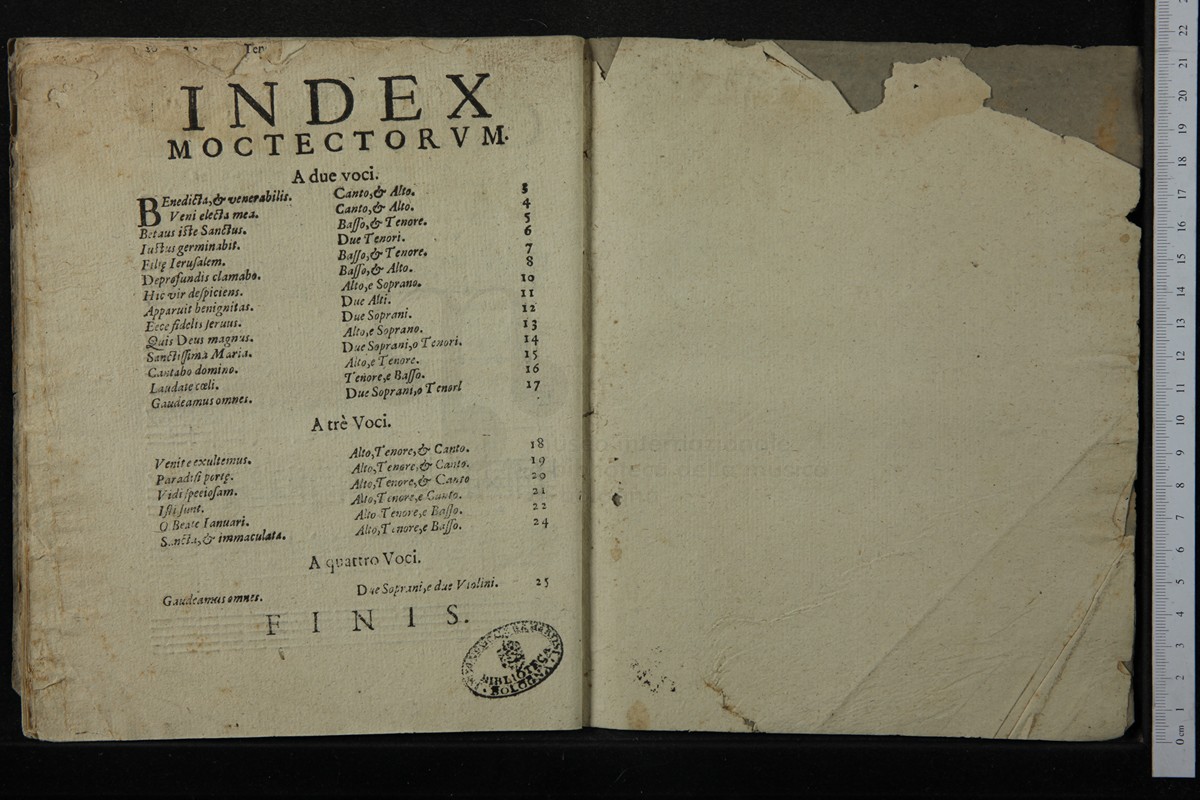 Ter
INDEX
MOCTECTORVM.
A due voci.
BEnedicta, & venerabilis. Canto, & Alto. 3
Veni electa mea. Canto, & Alto. 4
Betaus iste Sanctus. Basso, & Tenore. 5
Iustus germinabit. Due Tenori. 6
Filię Ierusalem. Basso, & Tenore. 7
Deprofundis clamabo. Basso, & Alto. 8
Hic vir despiciens. Alto, e Soprano. 10
Apparuit benignitas. Due Alti. 11
Ecce fidelis seruus. Due Soprani. 12
Quis Deus magnus. Alto, e Soprano. 13
Sanctissima Maria. Due Soprani, o Tenori. 14
Cantabo domino. Alto, e Tenore. 15
Laudate cœli. Tenore, e Basso. 16
Gaudeamus omnes. Due Soprani, o Tenori 17
A trè Voci.
Venite exultemus. Alto, Tenore, & Canto. 18
Paradisi portę. Alto, Tenore, & Canto. 19
Vidi speciosam. Alto, Tenore, & Canto 20
Isti sunt. Alto, Tenore, e Canto. 21
O Beate Ianuari. Alto Tenore, e Basso. 22
Sancta, & immaculata. Alto, Tenore, e Basso. 24
A quattro Voci.
Gaudeamus omnes. Due Soprani, e due Violini. 25
FINIS.
BIBLIOTECA
BOLOGNA
museo internazionale
e biblioteca della musica
0 cm 1 2 3 4 5 6 7 8 9 10 11 12 13 14 15 16 17 18 19 20 21 22